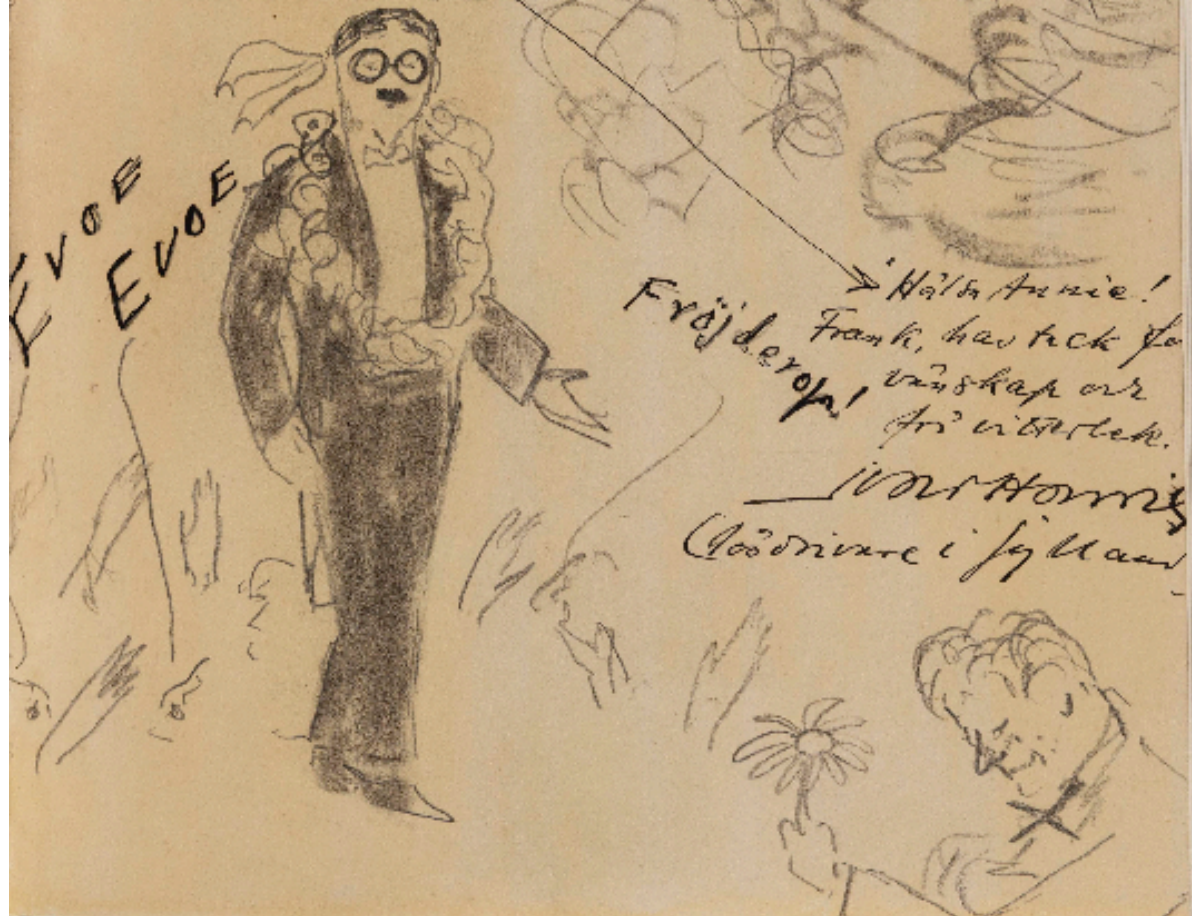 Evoe
Evoe
Fröjderop!
Hälsa Annie!
Frank, hav tack fö
vänskap och
för vitterlek.
Ivar Harrie
i Jylland